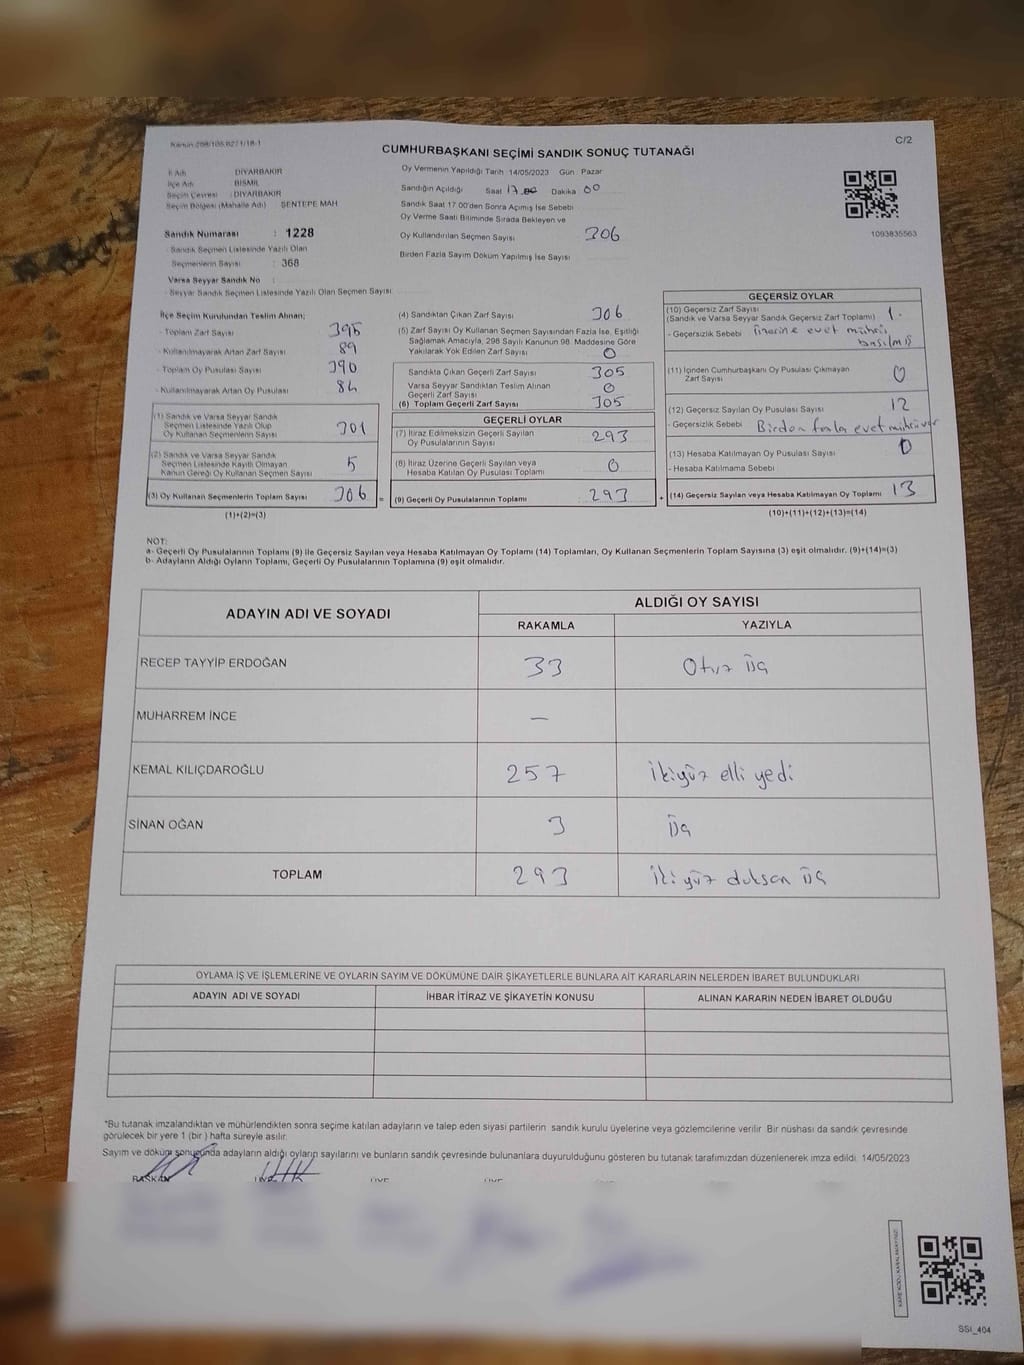 Kanun:298/105,6271/18-1
CUMHURBAŞKANI SEÇİMİ SANDIK SONUÇ TUTANAĞI
C/2
İl Adı : DİYARBAKIR
İlçe Adı : BİSMİL
Seçim Çevresi : DİYARBAKIR
Seçim Bölgesi (Mahalle Adı) : ŞENTEPE MAH
Sandık Numarası : 1228
Sandık Seçmen Listesinde Yazılı Olan
Seçmenlerin Sayısı : 368
Varsa Seyyar Sandık No :
Seyyar Sandık Seçmen Listesinde Yazılı Olan Seçmen Sayısı:
Oy Vermenin Yapıldığı Tarih 14/05/2023 Gün : Pazar
Sandığın Açıldığı Saat 17.00 Dakika 00
Sandık Saat 17.00'den Sonra Açımış İse Sebebi
Oy Verme Saati Bitiminde Sırada Bekleyen ve
Oy Kullandırılan Seçmen Sayısı 306
Birden Fazla Sayım Döküm Yapılmış İse Sayısı
1093835563
İlçe Seçim Kurulundan Teslim Alınan;
- Toplam Zarf Sayısı 395
- Kullanılmayarak Artan Zarf Sayısı 89
- Toplam Oy Pusulası Sayısı 390
- Kullanılmayarak Artan Oy Pusulası 84
(1) Sandık ve Varsa Seyyar Sandık
Seçmen Listesinde Yazılı Olup
Oy Kullanan Seçmenlerin Sayısı 301
(2) Sandık ve Varsa Seyyar Sandık
Seçmen Listesinde Kayıtlı Olmayan
Kanun Gereği Oy Kullanan Seçmen Sayısı 5
(3) Oy Kullanan Seçmenlerin Toplam Sayısı 306 =
(1)+(2)=(3)
(4) Sandıktan Çıkan Zarf Sayısı 306
(5) Zarf Sayısı Oy Kullanan Seçmen Sayısından Fazla İse, Eşitliği
Sağlamak Amacıyla, 298 Sayılı Kanunun 98. Maddesine Göre
Yakılarak Yok Edilen Zarf Sayısı 0
Sandıkta Çıkan Geçerli Zarf Sayısı 305
Varsa Seyyar Sandıktan Teslim Alınan
Geçerli Zarf Sayısı 0
(6) Toplam Geçerli Zarf Sayısı 305
GEÇERLİ OYLAR
(7) İtiraz Edilmeksizin Geçerli Sayılan
Oy Pusulalarının Sayısı 293
(8) İtiraz Üzerine Geçerli Sayılan veya
Hesaba Katılan Oy Pusulası Toplamı 0
(9) Geçerli Oy Pusulalarının Toplamı 293 +
GEÇERSİZ OYLAR
(10) Geçersiz Zarf Sayısı
(Sandık ve Varsa Seyyar Sandık Geçersiz Zarf Toplamı) 1.
- Geçersizlik Sebebi üzerine evet mührü
basılmış
(11) İçinden Cumhurbaşkanı Oy Pusulası Çıkmayan
Zarf Sayısı 0
(12) Geçersiz Sayılan Oy Pusulası Sayısı 12
- Geçersizlik Sebebi Birden fazla evet mührü var
(13) Hesaba Katılmayan Oy Pusulası Sayısı 0
- Hesaba Katılmama Sebebi
(14) Geçersiz Sayılan veya Hesaba Katılmayan Oy Toplamı 13
(10)+(11)+(12)+(13)=(14)
NOT:
a- Geçerli Oy Pusulalarının Toplamı (9) ile Geçersiz Sayılan veya Hesaba Katılmayan Oy Toplamı (14) Toplamları, Oy Kullanan Seçmenlerin Toplam Sayısına (3) eşit olmalıdır. (9)+(14)=(3)
b- Adayların Aldığı Oyların Toplamı, Geçerli Oy Pusulalarının Toplamına (9) eşit olmalıdır.
ADAYIN ADI VE SOYADI
ALDIĞI OY SAYISI
RAKAMLA YAZIYLA
RECEP TAYYİP ERDOĞAN 33 Otuz üç
MUHARREM İNCE –
KEMAL KILIÇDAROĞLU 257 İkiyüz elli yedi
SİNAN OĞAN 3 Üç
TOPLAM 293 İkiyüz doksan üç
OYLAMA İŞ VE İŞLEMLERİNE VE OYLARIN SAYIM VE DÖKÜMÜNE DAİR ŞİKAYETLERLE BUNLARA AİT KARARLARIN NELERDEN İBARET BULUNDUKLARI
ADAYIN ADI VE SOYADI İHBAR İTİRAZ VE ŞİKAYETİN KONUSU ALINAN KARARIN NEDEN İBARET OLDUĞU
*Bu tutanak imzalandıktan ve mühürlendikten sonra seçime katılan adayların ve talep eden siyasi partilerin sandık kurulu üyelerine veya gözlemcilerine verilir. Bir nüshası da sandık çevresinde
görülecek bir yere 1 (bir ) hafta süreyle asılır.
Sayım ve döküm sonucunda adayların aldığı oyların sayılarını ve bunların sandık çevresinde bulunanlara duyurulduğunu gösteren bu tutanak tarafımızdan düzenlenerek imza edildi. 14/05/2023
BAŞKAN
SSİ_404